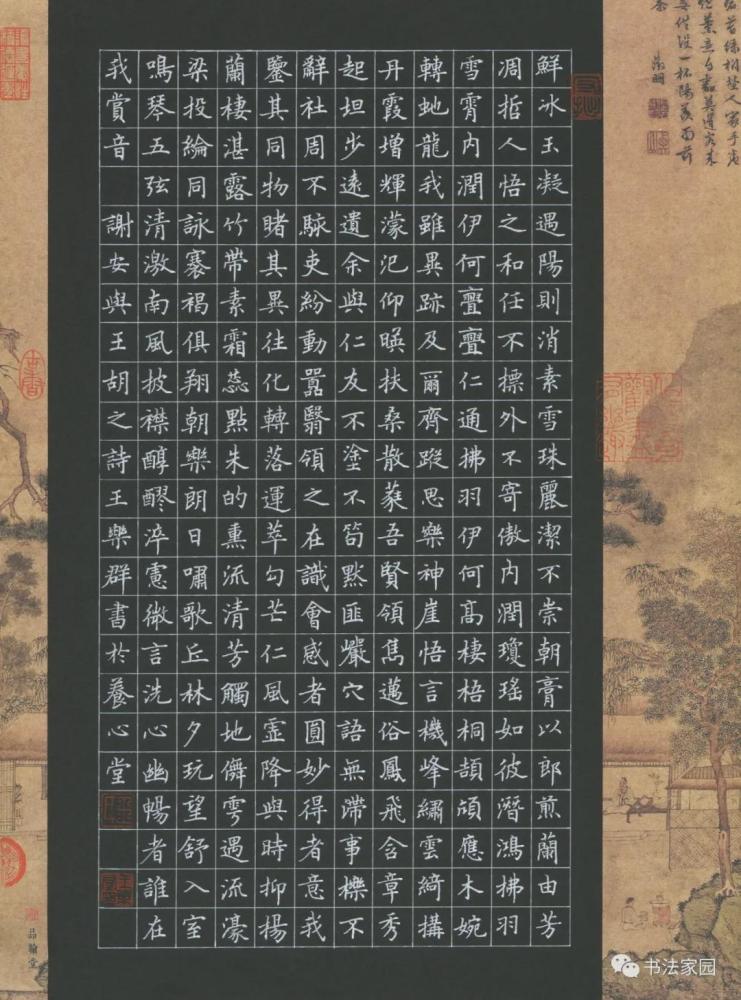 鮮冰玉凝遇陽則消素雪珠麗潔不崇朝膏以郎煎蘭由芳
凋哲人悟之和任不摽外不寄傲內潤瓊瑤如彼潛鴻拂羽
雪霄內潤伊何亹亹仁通拂羽伊何高棲梧桐頡頏應木婉
轉虵龍我雖異跡及爾齊蹤思樂神崖悟言機峰繡雲綺構
丹霞增輝濛汜仰暎扶桑散蕤吾賢領雋邁俗鳳飛含章秀
起坦步遠遺余與仁友不塗不笱默匪巖穴語無滯事櫟不
辭社周不駭吏紛動囂翳領之在識會感者圓妙得者意我
鑒其同物睹其異往化轉落運萃勾芒仁風霊降與時抑揚
蘭棲湛露竹帶素霜蕊點朱的熏流清芳觸地儛雩遇流濠
梁投綸同詠褰褐俱翔朝樂朗日嘯歌丘林夕玩望舒入室
鳴琴五弦清激南風披襟醇醪淬憲微言洗心幽暢者誰在
我賞音 謝安與王胡之詩王樂群書於養心堂
品翰堂
书法家园